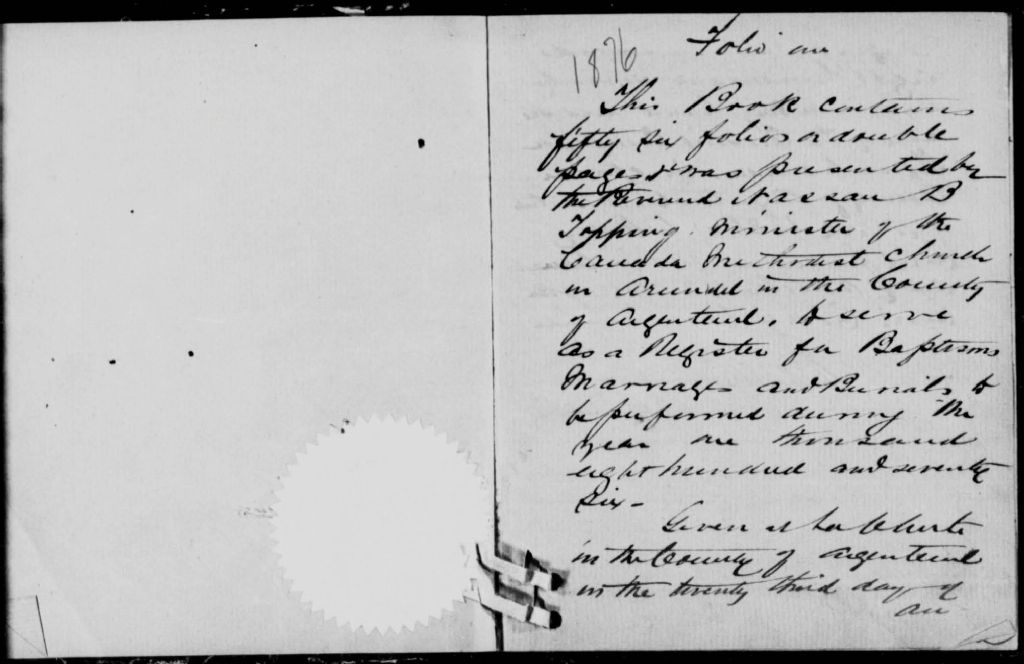 1876
Folio one
This Book contains
fifty six folios or double
pages & was presented by
the Reverend Nassau B
Topping Minister of the
Canada Methodist Church
in Arundel in the County
of Argenteuil, to serve
as a Register for Baptisms
Marriages and Burials to
be performed during the
year one thousand
eight hundred and seventy
six-
Given at Lachute
in the County of Argenteuil
on the twenty third day of